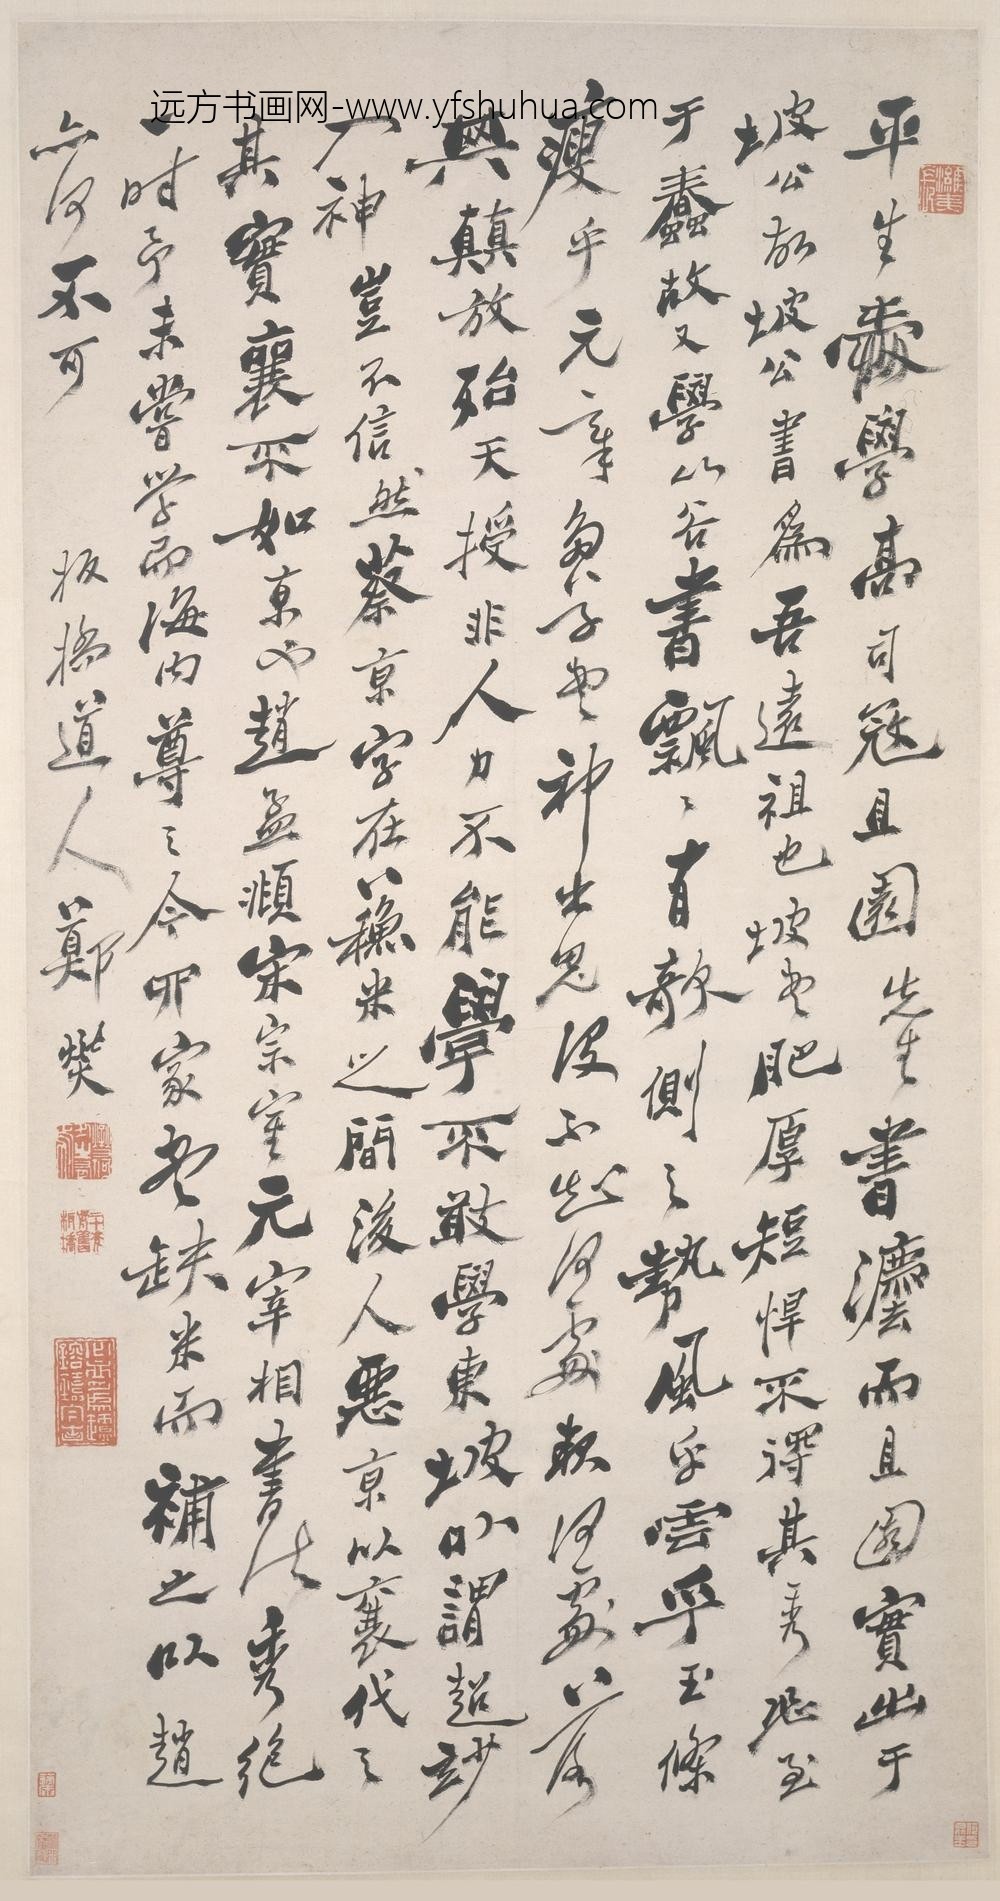 远方书画网-www.yfshuhua.com
平生愛學高司冠且園先生書灋而且園實出于
坡公故坡公書爲吾遠祖也坡書肥厚短悍不得其秀恐至
于蠢故又學山谷書飄〻有欹側之勢風乎雲乎玉條
瘦乎元章多不書神出鬼没不知何處起何處落
與顛放殆天授非人力不能學不敢學東坡以謂超妙
入神豈不信然蔡京字在蘇米之間後人惡京以襄代之
其實襄不如京也趙孟頫宋宗室元宰相書法秀絶
一時予未嘗學而海内尊之今四家書缺米而補之以趙
亦何不可
板橋道人鄭燮